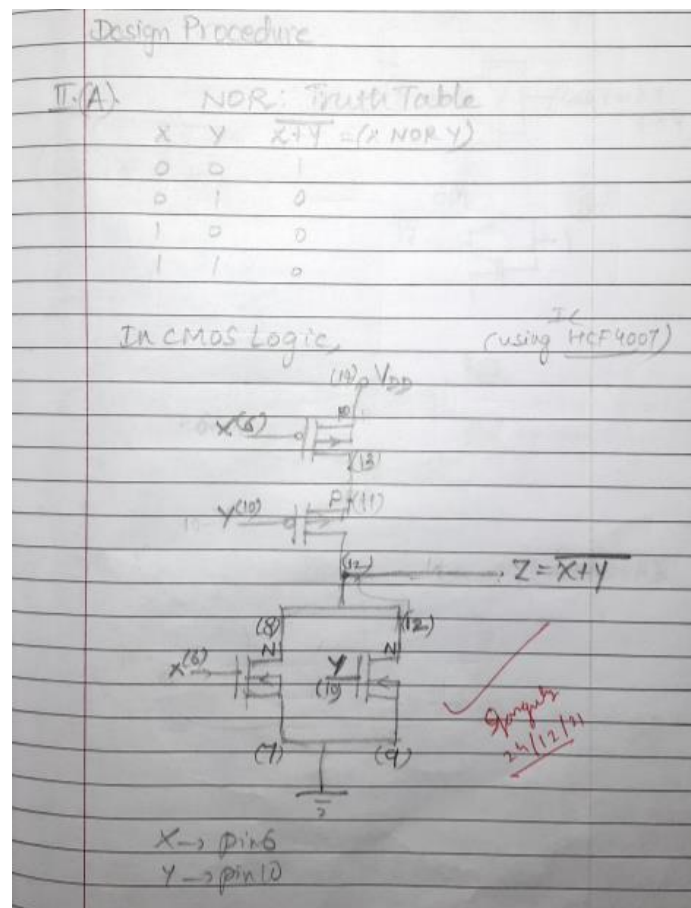 Design Procedure
II.(A). NOR: Truth Table
X Y X+Y = (X NOR Y)
0 0 1
0 1 0
1 0 0
1 1 0
In CMOS Logic, (using IC HCF4007)
(14) VDD
X(6)
(13)
Y(10) P (11)
(12) Z = X+Y
(8) (12)
X(6) N Y N
(10)
(7) (9)
24/12/21
X → pin6
Y → pin10